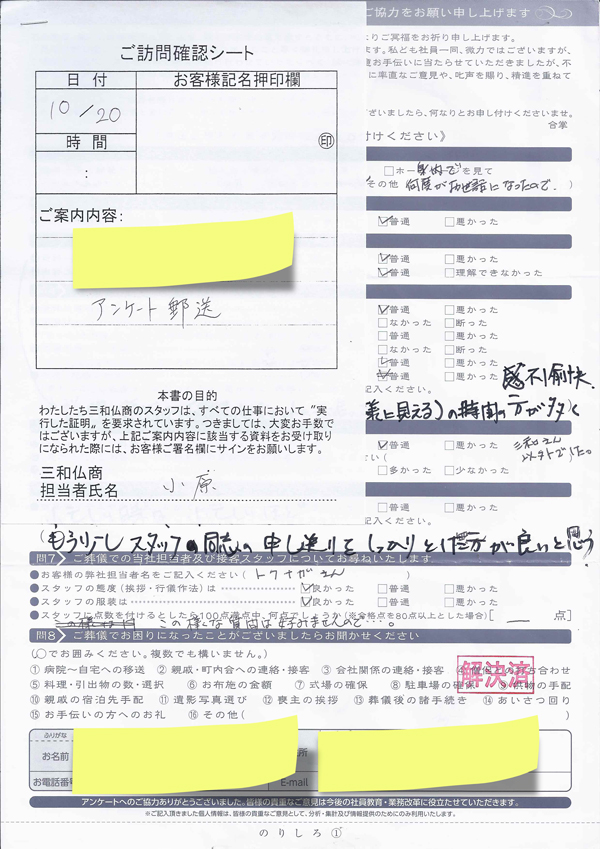 ご協力をお願い申し上げます
ご訪問確認シート
日付
お客様記名押印欄
10/20
時間
:
印
ご案内内容:
アンケート郵送
本書の目的
わたしたち三和仏商のスタッフは、すべての仕事において"実
行した証明"を要求されています。つきましては、大変お手数で
はございますが、上記ご案内内容に該当する資料をお受け取り
になられた際には、お客様ご署名欄にサインをお願いします。
三和仏商
担当者氏名
小原
りご冥福をお祈り申し上げます。
ます。私ども社員一同、微力ではございますが、
お手伝いに当たらせていただきましたが、不
に率直なご意見や、叱声を賜り、精進を重ねて
ございましたら、何なりとお申し付けくださいませ。
合掌
付けください》
を見て
その他
何度かお世話になったので。)
普通 悪かった
普通 悪かった
普通 理解できなかった
普通 悪かった
なかった 断った
普通 悪かった
なかった 悪かった
普通 悪かった
普通 悪かった
記入ください。
不愉快。
見える)の時間の方が多く
普通 悪かった
三和さん
以外でした。
多かった 少なかった
普通 悪かった
記入ください。
(もう少しスタッフの同志の申し送りをしっかりとした方が良いと思う
問7 ご葬儀での当社担当者及び接客スタッフについてお尋ねいたします。
●お客様の弊社担当者名をご記入ください(トクナガさん)
●スタッフの態度(挨拶・行儀作法)は 良かった 普通 悪かった
●スタッフの服装は 良かった 普通 悪かった
●スタッフに点数を付けるとしたら100点満点中、何点でしょうか(合格点を80点以上とした場合)[ー 点]
この様な質問は好みませんので…。
問8 ご葬儀でお困りになったことがございましたらお聞かせください
(○でお囲みください。複数でも構いません。)
①病院~自宅への移送 ②親戚・町内会への連絡・接客 ③会社関係の連絡・接客 ④僧侶との打ち合わせ
⑤料理・引出物の数・選択 ⑥お布施の金額 ⑦式場の確保 ⑧駐車場の確保 ⑨供物の手配
⑩親戚の宿泊先手配 ⑪遺影写真選び ⑫喪主の挨拶 ⑬葬儀後の諸手続き ⑭あいさつ回り
⑮お手伝いの方へのお礼 ⑯その他( )
解決済
ふりがな
お名前
所
お電話番号
E-mail
アンケートへのご協力ありがとうございました。皆様の貴重なご意見は今後の社員教育・業務改革に役立たせていただきます。
※ご記入頂きました個人情報は、皆様の貴重なご意見として、分析・集計及び情報提供のためにのみ利用いたします。
のりしろ①